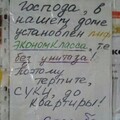 господа, в
нашем доме
установлен лифт
экономкласса, те
без унитаза!
поэтому
терпите,
суки, до
квартиры!